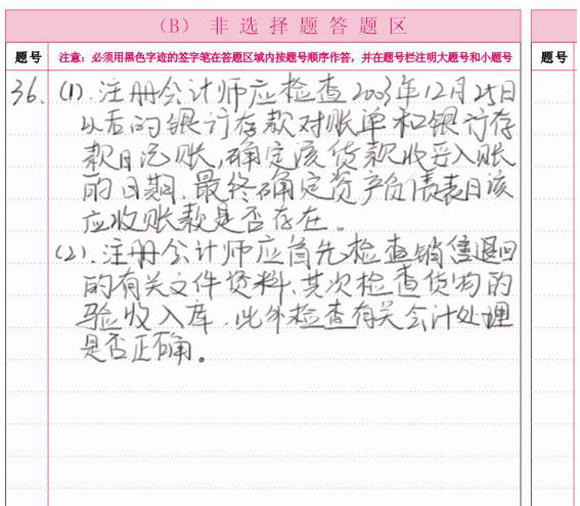 (B) 非选择题答题区
题号 注意:必须用黑色字迹的签字笔在答题区域内按题号顺序作答,并在题号栏注明大题号和小题号 题号
36. (1).注册会计师应检查2003年12月25日
以后的银行存款对账单和银行存
款日记账,确定该货款收妥入账
的日期,最终确定资产负债表日该
应收账款是否存在。
(2).注册会计师应首先检查销售退回
的有关文件资料,其次检查货物的
验收入库,此外检查有关会计处理
是否正确。